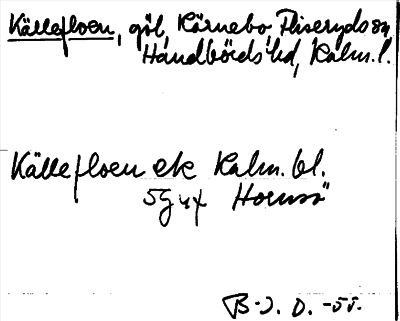 Källefloen, göl, Kärnebo, Fliseryds sn,
Handbörds hd, Kalm. l.
Källefloen ek Kalm. bl.
5G Hornsö
B-J. D. -55.